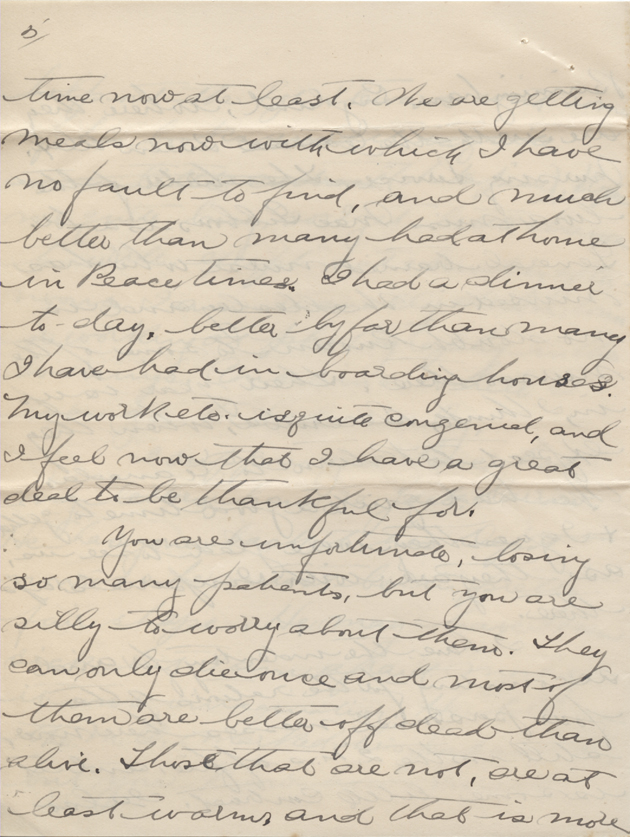 5/
time now at least. We are getting
meals now with which I have
no fault to find, and much
better than many had at home
in Peace times. I had a dinner
to-day, better by far than many
I have had in boarding houses.
My work etc. is quite congenial, and
I feel now that I have a great
deal to be thankful for.
You are unfortunate, losing
so many patients, but you are
silly to worry about them. They
can only die once and most of
them are better off dead than
alive. Those that are not, are at
least warm, and that is more